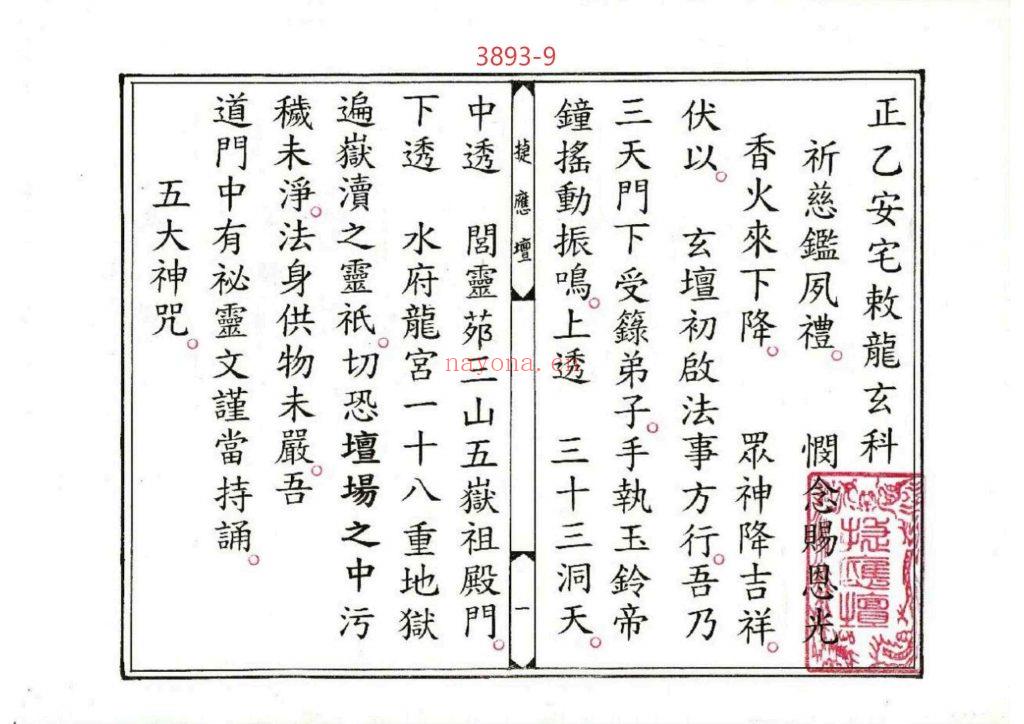 3893-9
正乙安宅敕龍玄科
祈慈鑑夙禮。 憫念賜恩光
香火來下降。 眾神降吉祥。
伏以。 玄壇初啟法事方行。吾乃
三天門下受籙弟子。手執玉鈴帝
鐘搖動振鳴。上透 三十三洞天。
捷應壇
一
中透 閭靈茆三山五嶽祖殿門。
下透 水府龍宮一十八重地獄
遍嶽瀆之靈祇。切恐壇場之中污
穢未淨。法身供物未嚴。吾
道門中有祕靈文謹當持誦。
五大神咒。
捷應壇
nayona.cn